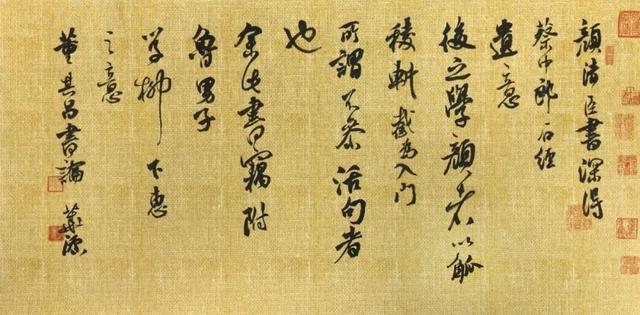 顏清臣書深得
蔡中郎石經
遺意
後之學顏者以觚
稜斬截為入門
所謂不參活句者
也
余此書竊附
魯男子
學柳下惠
之意
董其昌書論